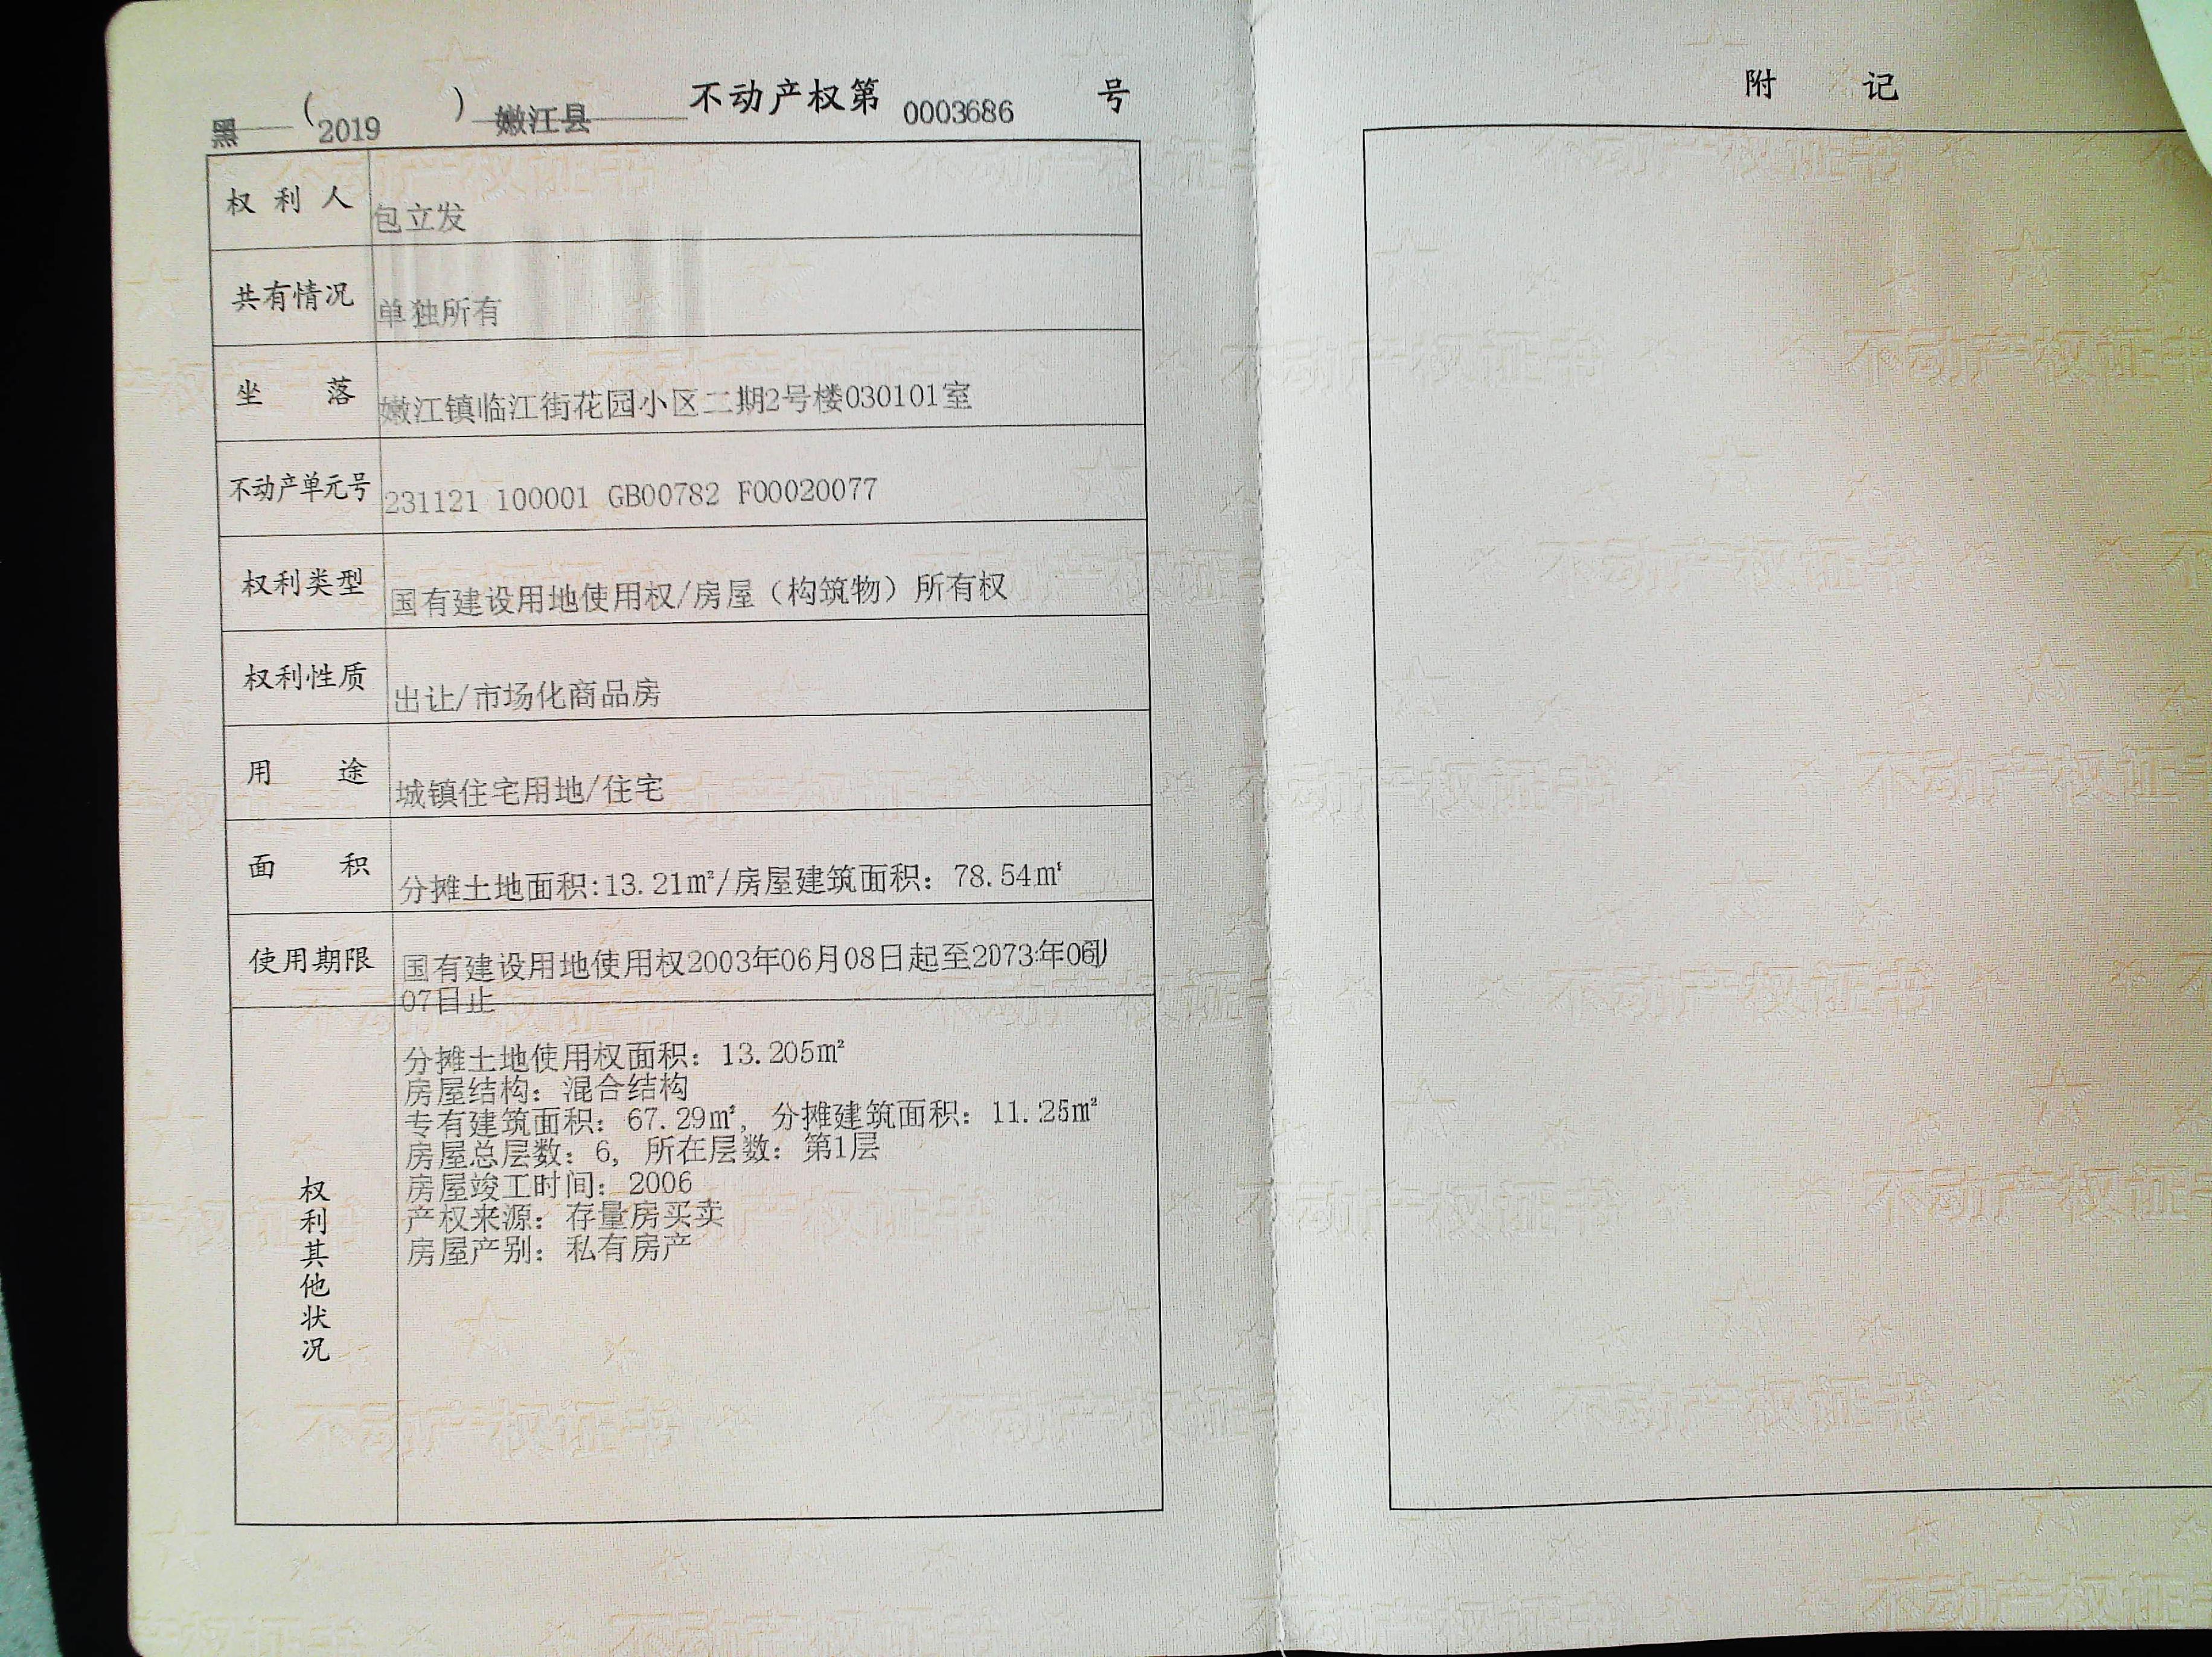 黑 (2019) 嫩江县 不动产权第 0003686 号
权利人 包立发
共有情况 单独所有
坐落 嫩江镇临江街花园小区二期2号楼030101室
不动产单元号 231121 100001 GB00782 F00020077
权利类型 国有建设用地使用权/房屋（构筑物）所有权
权利性质 出让/市场化商品房
用途 城镇住宅用地/住宅
面积 分摊土地面积:13.21㎡/房屋建筑面积：78.54㎡
使用期限 国有建设用地使用权2003年06月08日起至2073年06月
07日止
权利其他状况
分摊土地使用权面积：13.205㎡
房屋结构：混合结构
专有建筑面积：67.29㎡，分摊建筑面积：11.25㎡
房屋总层数：6，所在层数：第1层
房屋竣工时间：2006
产权来源：存量房买卖
房屋产别：私有房产
附记
不动产权证书